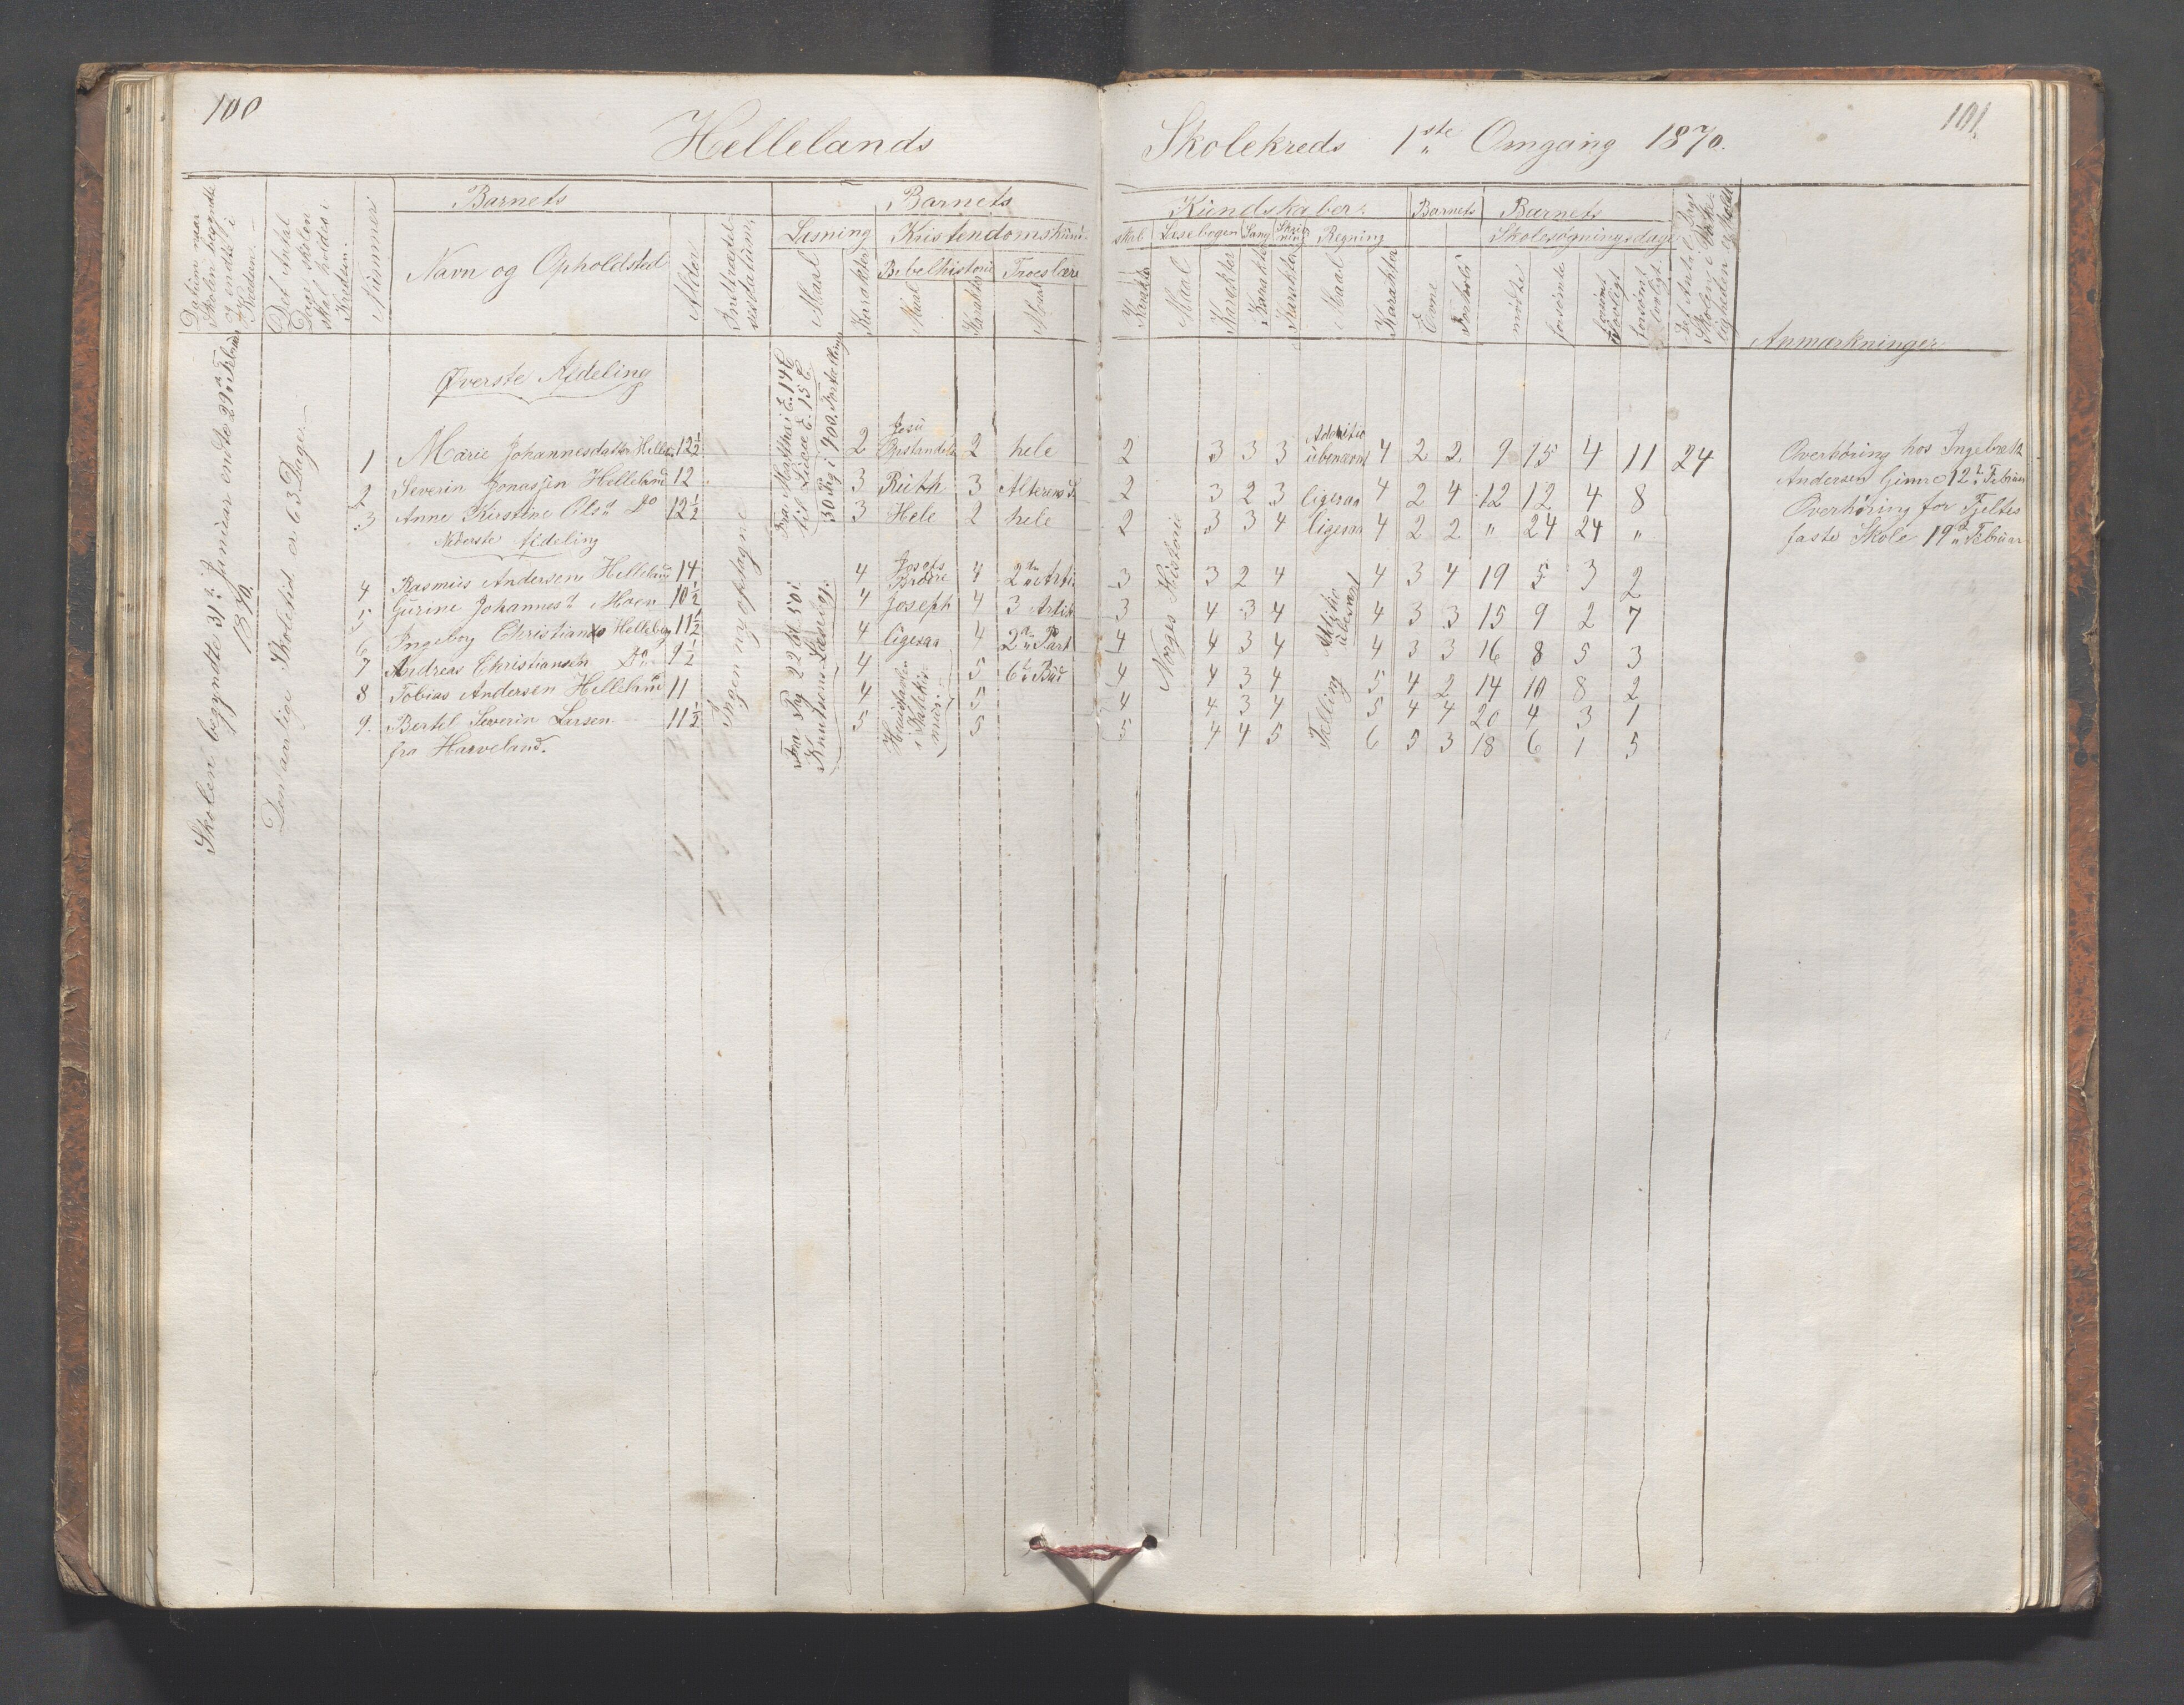 100
Hellelands
Skolekreds 1ste Omgang 1870.
101
Datum naar Skolen begyndte og endte i Kredsen.
Det Antal Dage skolen skal holdes i Kredsen.
Nummer
Barnets
Navn og Opholdsted
Alder
Barnets
Læsning
Maal
Karakter
Kristendomskund-
Bibelhistorie
Maal
Karakter
Troeslære
Maal
Kundskaber.
skab
Karakter
Læsebogen
Maal
Karakter
Sang
Karakter
Skrivning
Karakter
Regning
Maal
Karakter
Barnets
Evne
Forhold
Barnets
Skolesøgningsdage
mødte
forsømte
forsømt lovligt
Anmærkninger
Skolen begyndte 31te Januar endte 29de Februar 1870.
Den lovlige Skoletid er 63 Dage.
Ingen ny optagne
Øverste Afdeling
Fra Matthæi E. 14 C til Lucæ E. 15 C
1 Marie Johannesdatter Helle 12½ 2 Jesu Opstandelse 2 hele 2 3 3 3 Additio ubenævnt 4 2 2 9 15 4 11 24
2 Severin Jonassen Helleland 12 3 Ruth 3 Alterens S. 2 3 2 3 ligesaa 4 2 4 12 12 4 8
3 Anne Kirstine Olsd. Do 12½ 3 Hele 2 hele 2 3 3 4 ligesaa 4 2 2 " 24 24 "
Overhøring hos Ingebreth
Andersen Gimre 12te Februar
Overhøring for Tjeltes
faste Skole 19de Februar
Nederste Afdeling
Fra Pag 22 til 50 i Knutsens Læsebog.
Norges Historie
4 Rasmus Andersen Helleland 14 4 Josefs Brødre 4 2den Arti 3 3 2 4 4 3 4 19 5 3 2
5 Gurine Johannesd. Moen 10½ 4 Joseph 4 3 Artik 3 4 3 4 4 3 3 15 9 2 7
6 Ingeborg Christians Helleland 11½ 4 ligesaa 4 2den Part 4 4 3 4 4 3 3 16 8 5 3
7 Andreas Christiansen Do 9½ 4 5 6te Bud 4 4 3 4 5 4 2 14 10 8 2
8 Tobias Andersen Helleland 11 4 5 4 4 3 4 5 4 4 20 4 3 1
9. Bertel Severin Larsen 11½ 5 5 5 4 4 5 6 5 3 18 6 1 5
fra Harveland.
Tælling